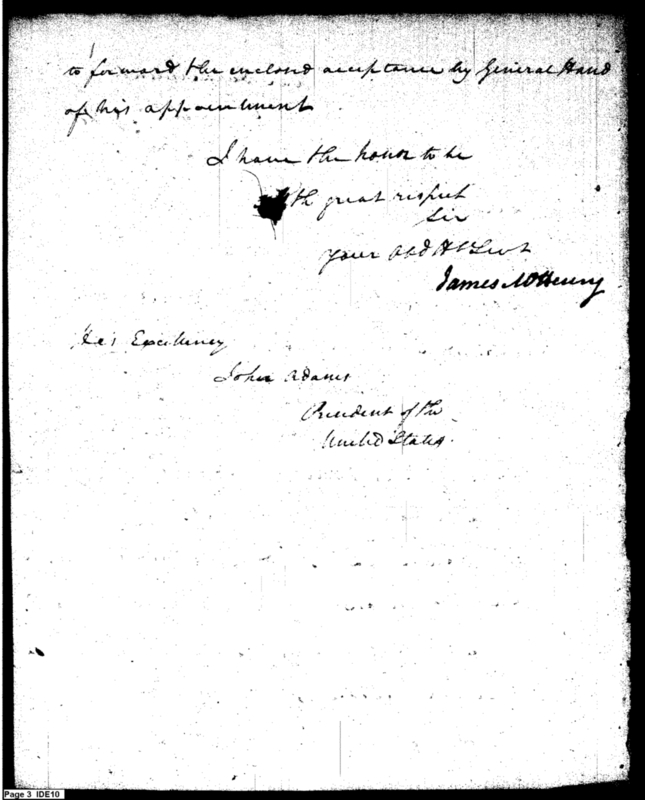 to forward the enclosed acceptance by General Hand
of his appointment
I have the honor to be
th great respect
Sir
your Obd Hl Servt
James McHenry
His Excellency
John Adams
President of the
United States.
Page 3 IDE10